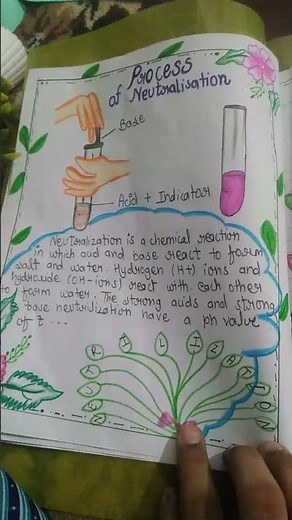 Process
of Neutralisation
Base
Acid + Indicator
Neutralization is a chemical reaction
in which acid and base react to form
salt and water. Hydrogen (H+) ions and
hydroxide (OH-ions) react with each other
to form water. The strong acids and strong
base neutrilization have a ph value
of 7 ...
R I L I Z A T I O N